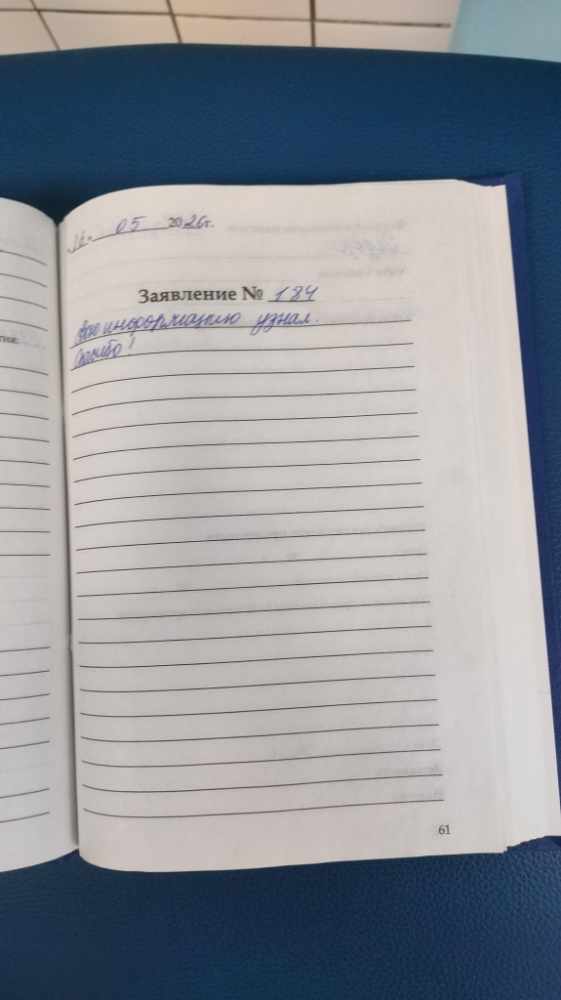 16. 05 2026г.
Заявление № 184
Всю информацию узнал.
Спасибо!
61